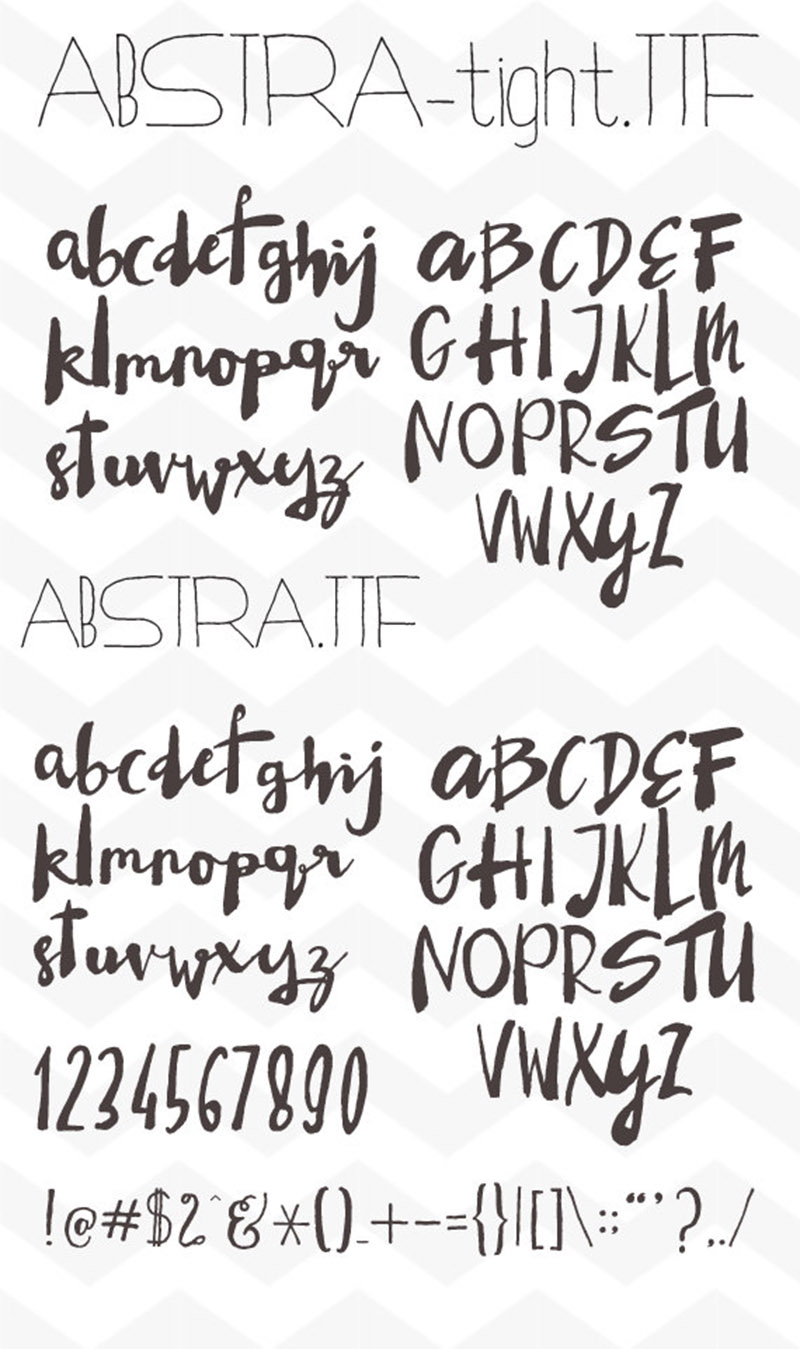 ABSTRA-tight.TTF
abcdefghij
klmnopqr
stuvwxyz
aBCDEF
GHIJKLM
NOPRSTU
VWXyZ
ABSTRA.TTF
abcdefghij
klmnopqr
stuvwxyz
1234567890
aBCDEF
GHIJKLM
NOPRSTU
VWXyZ
!@#$2^&*()_+-={}|[]\:;“‘’?,./